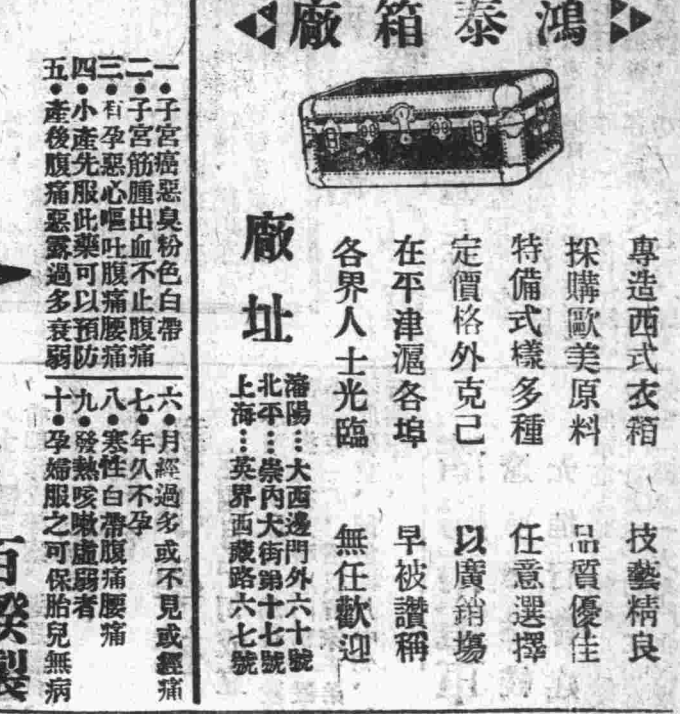 鴻泰箱廠
專造西式衣箱 技藝精良
採購歐美原料 品質優佳
特備式樣多種 任意選擇
定價格外克己 以廣銷場
在平津滬各埠 早被讚稱
各界人士光臨 無任歡迎
廠址
瀋陽…大西邊門外六十號
北平…崇內大街第十七號
上海…英界西藏路六七號
一●子宮癌惡臭粉色白帶
二●子宮筋腫出血不止腹痛
三●有孕惡心嘔吐腹痛腰痛
四●小產先服此藥可以預防
五●產後腹痛惡露過多衰弱
六●月經過多或不見或經痛
七●年久不孕
八●寒性白帶腹痛腰痛
九●發熱咳嗽虛弱者
十●孕婦服之可保胎兒無病